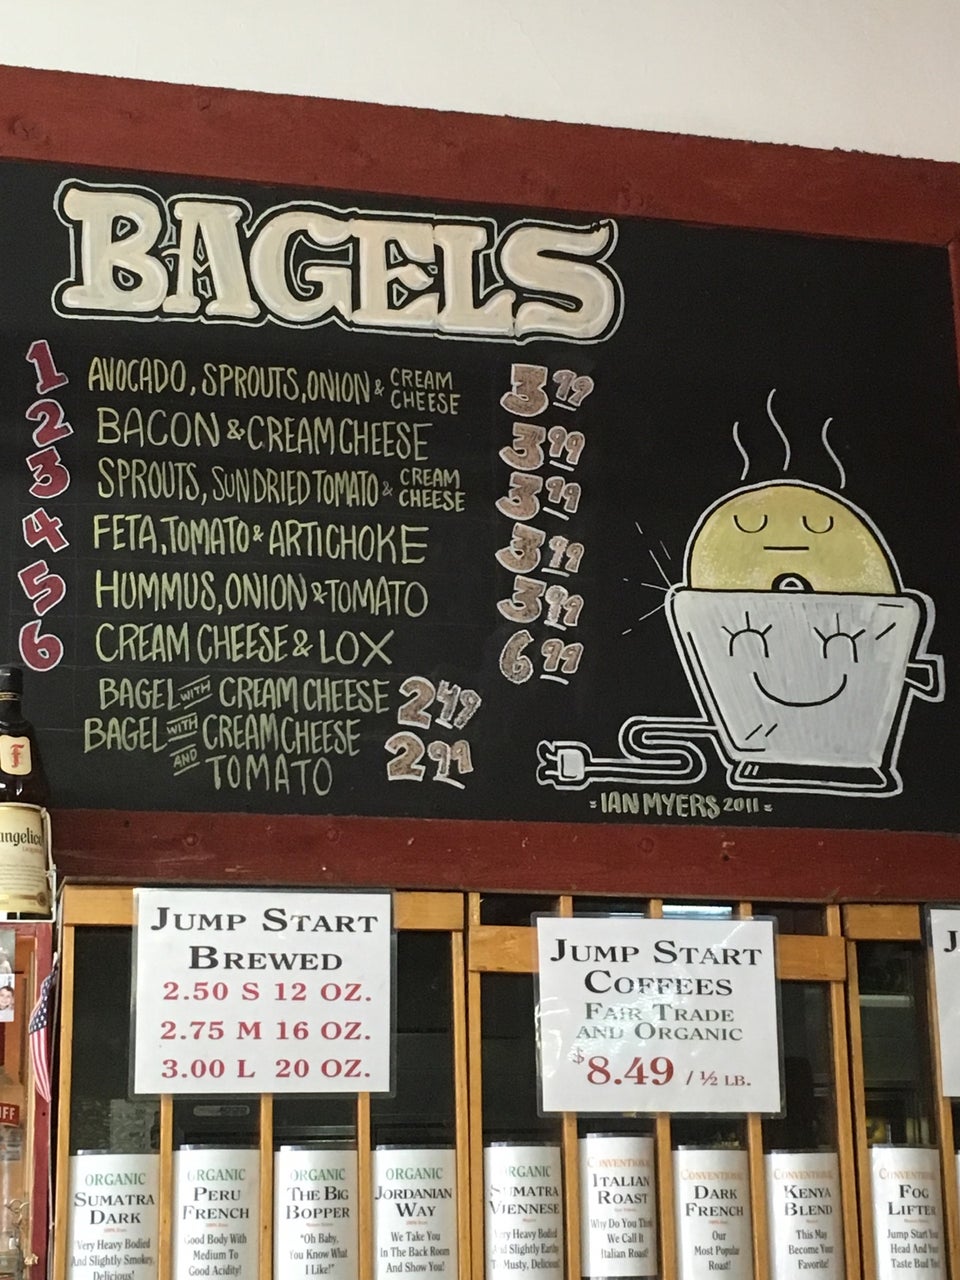 BAGELS
1 AVOCADO, SPROUTS, ONION & CREAM CHEESE 3.99
2 BACON & CREAM CHEESE 3.99
3 SPROUTS, SUNDRIED TOMATO & CREAM CHEESE 3.99
4 FETA, TOMATO & ARTICHOKE 3.99
5 HUMMUS, ONION & TOMATO 3.99
6 CREAM CHEESE & LOX 6.99
BAGEL WITH CREAM CHEESE 2.49
BAGEL WITH CREAM CHEESE
AND TOMATO 2.99
IAN MYERS 2011
JUMP START
BREWED
2.50 S 12 OZ.
2.75 M 16 OZ.
3.00 L 20 OZ.
JUMP START
COFFEES
FAIR TRADE
AND ORGANIC
$8.49 / ½ LB.
J
ORGANIC
SUMATRA
DARK
Very Heavy Bodied
And Slightly Smokey,
Delicious!
ORGANIC
PERU
FRENCH
Good Body With
Medium To
Good Acidity!
ORGANIC
THE BIG
BOPPER
"Oh Baby,
You Know What
I Like!"
ORGANIC
JORDANIAN
WAY
We Take You
In The Back Room
And Show You!
ORGANIC
SUMATRA
VIENNESE
Very Heavy Bodied
And Slightly Earthy
Musty, Delicious
CONVENTIONAL
ITALIAN
ROAST
Why Do You Think
We Call It
Italian Roast?
CONVENTIONAL
DARK
FRENCH
Our
Most Popular
Roast!
CONVENTIONAL
KENYA
BLEND
This May
Become Your
Favorite!
CONVENTIONAL
FOG
LIFTER
Jump Start Your
Head And Your
Taste Bud